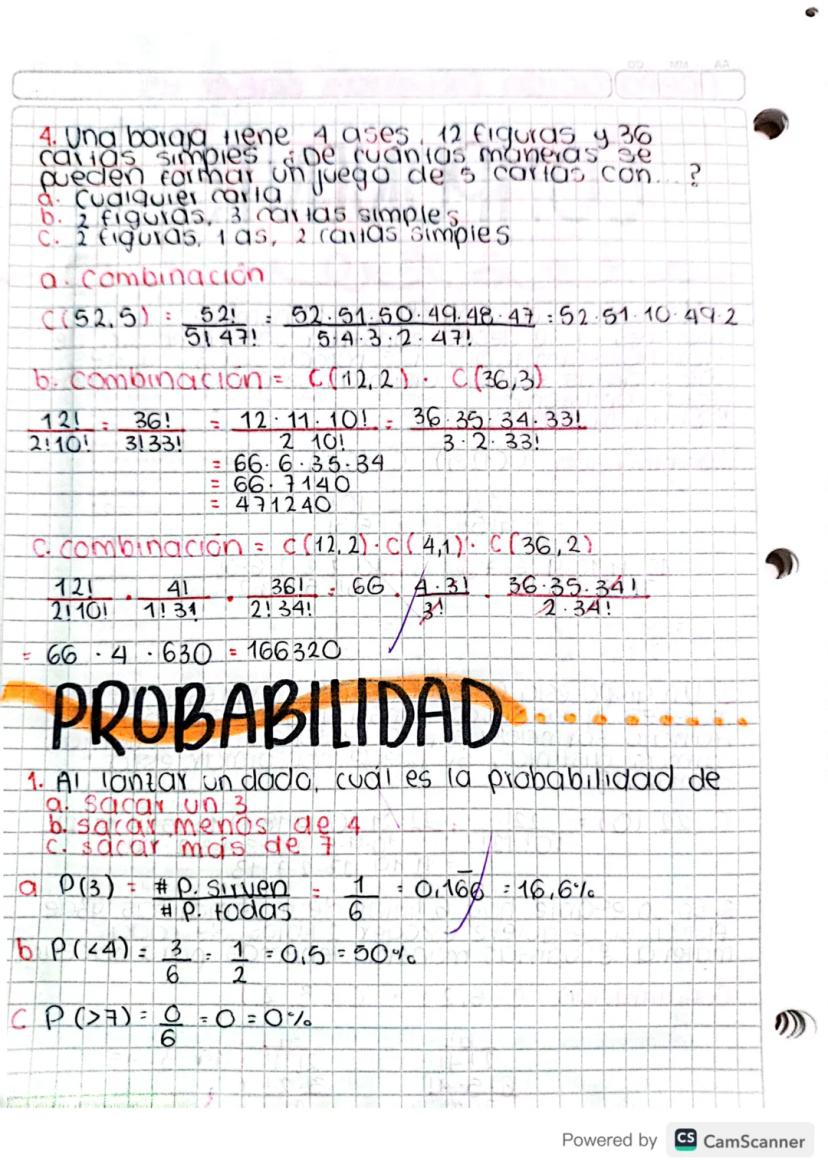 4. Una baraja tiene 4 ases, 12 figuras y 36
cartas simples. ¿De cuántas maneras se
pueden formar un juego de 5 cartas con...?
a. Cualquier carta
b. 2 figuras, 3 cartas simples
c. 2 figuras, 1 as, 2 cartas simples
a. combinación
C(52,5) = 52! / 5! 47! = 52·51·50·49·48·47 / 5·4·3·2·47! = 52·51·10·49·2
b. combinación = C(12,2) · C(36,3)
12! / 2!10! = 36! / 3!33! = 12·11·10! / 2 10! = 36·35·34·33! / 3·2·33!
= 66·6·35·34
= 66·7140
= 471240
c. combinación = C(12,2)·C(4,1)·C(36,2)
12! / 2!10! · 4! / 1!3! · 36! / 2!34! = 66 · 4·3! / 3! · 36·35·34! / 2·34!
= 66 · 4 · 630 = 166320
PROBABILIDAD
1. Al lanzar un dado, cuál es la probabilidad de
a. sacar un 3
b. sacar menos de 4
c. sacar más de 7
a P(3) = # P. sirven / # P. todas = 1/6 = 0,166 = 16,6%
b P(<4) = 3/6 = 1/2 = 0,5 = 50%
c P(>7) = 0/6 = 0 = 0%
Powered by CS CamScanner